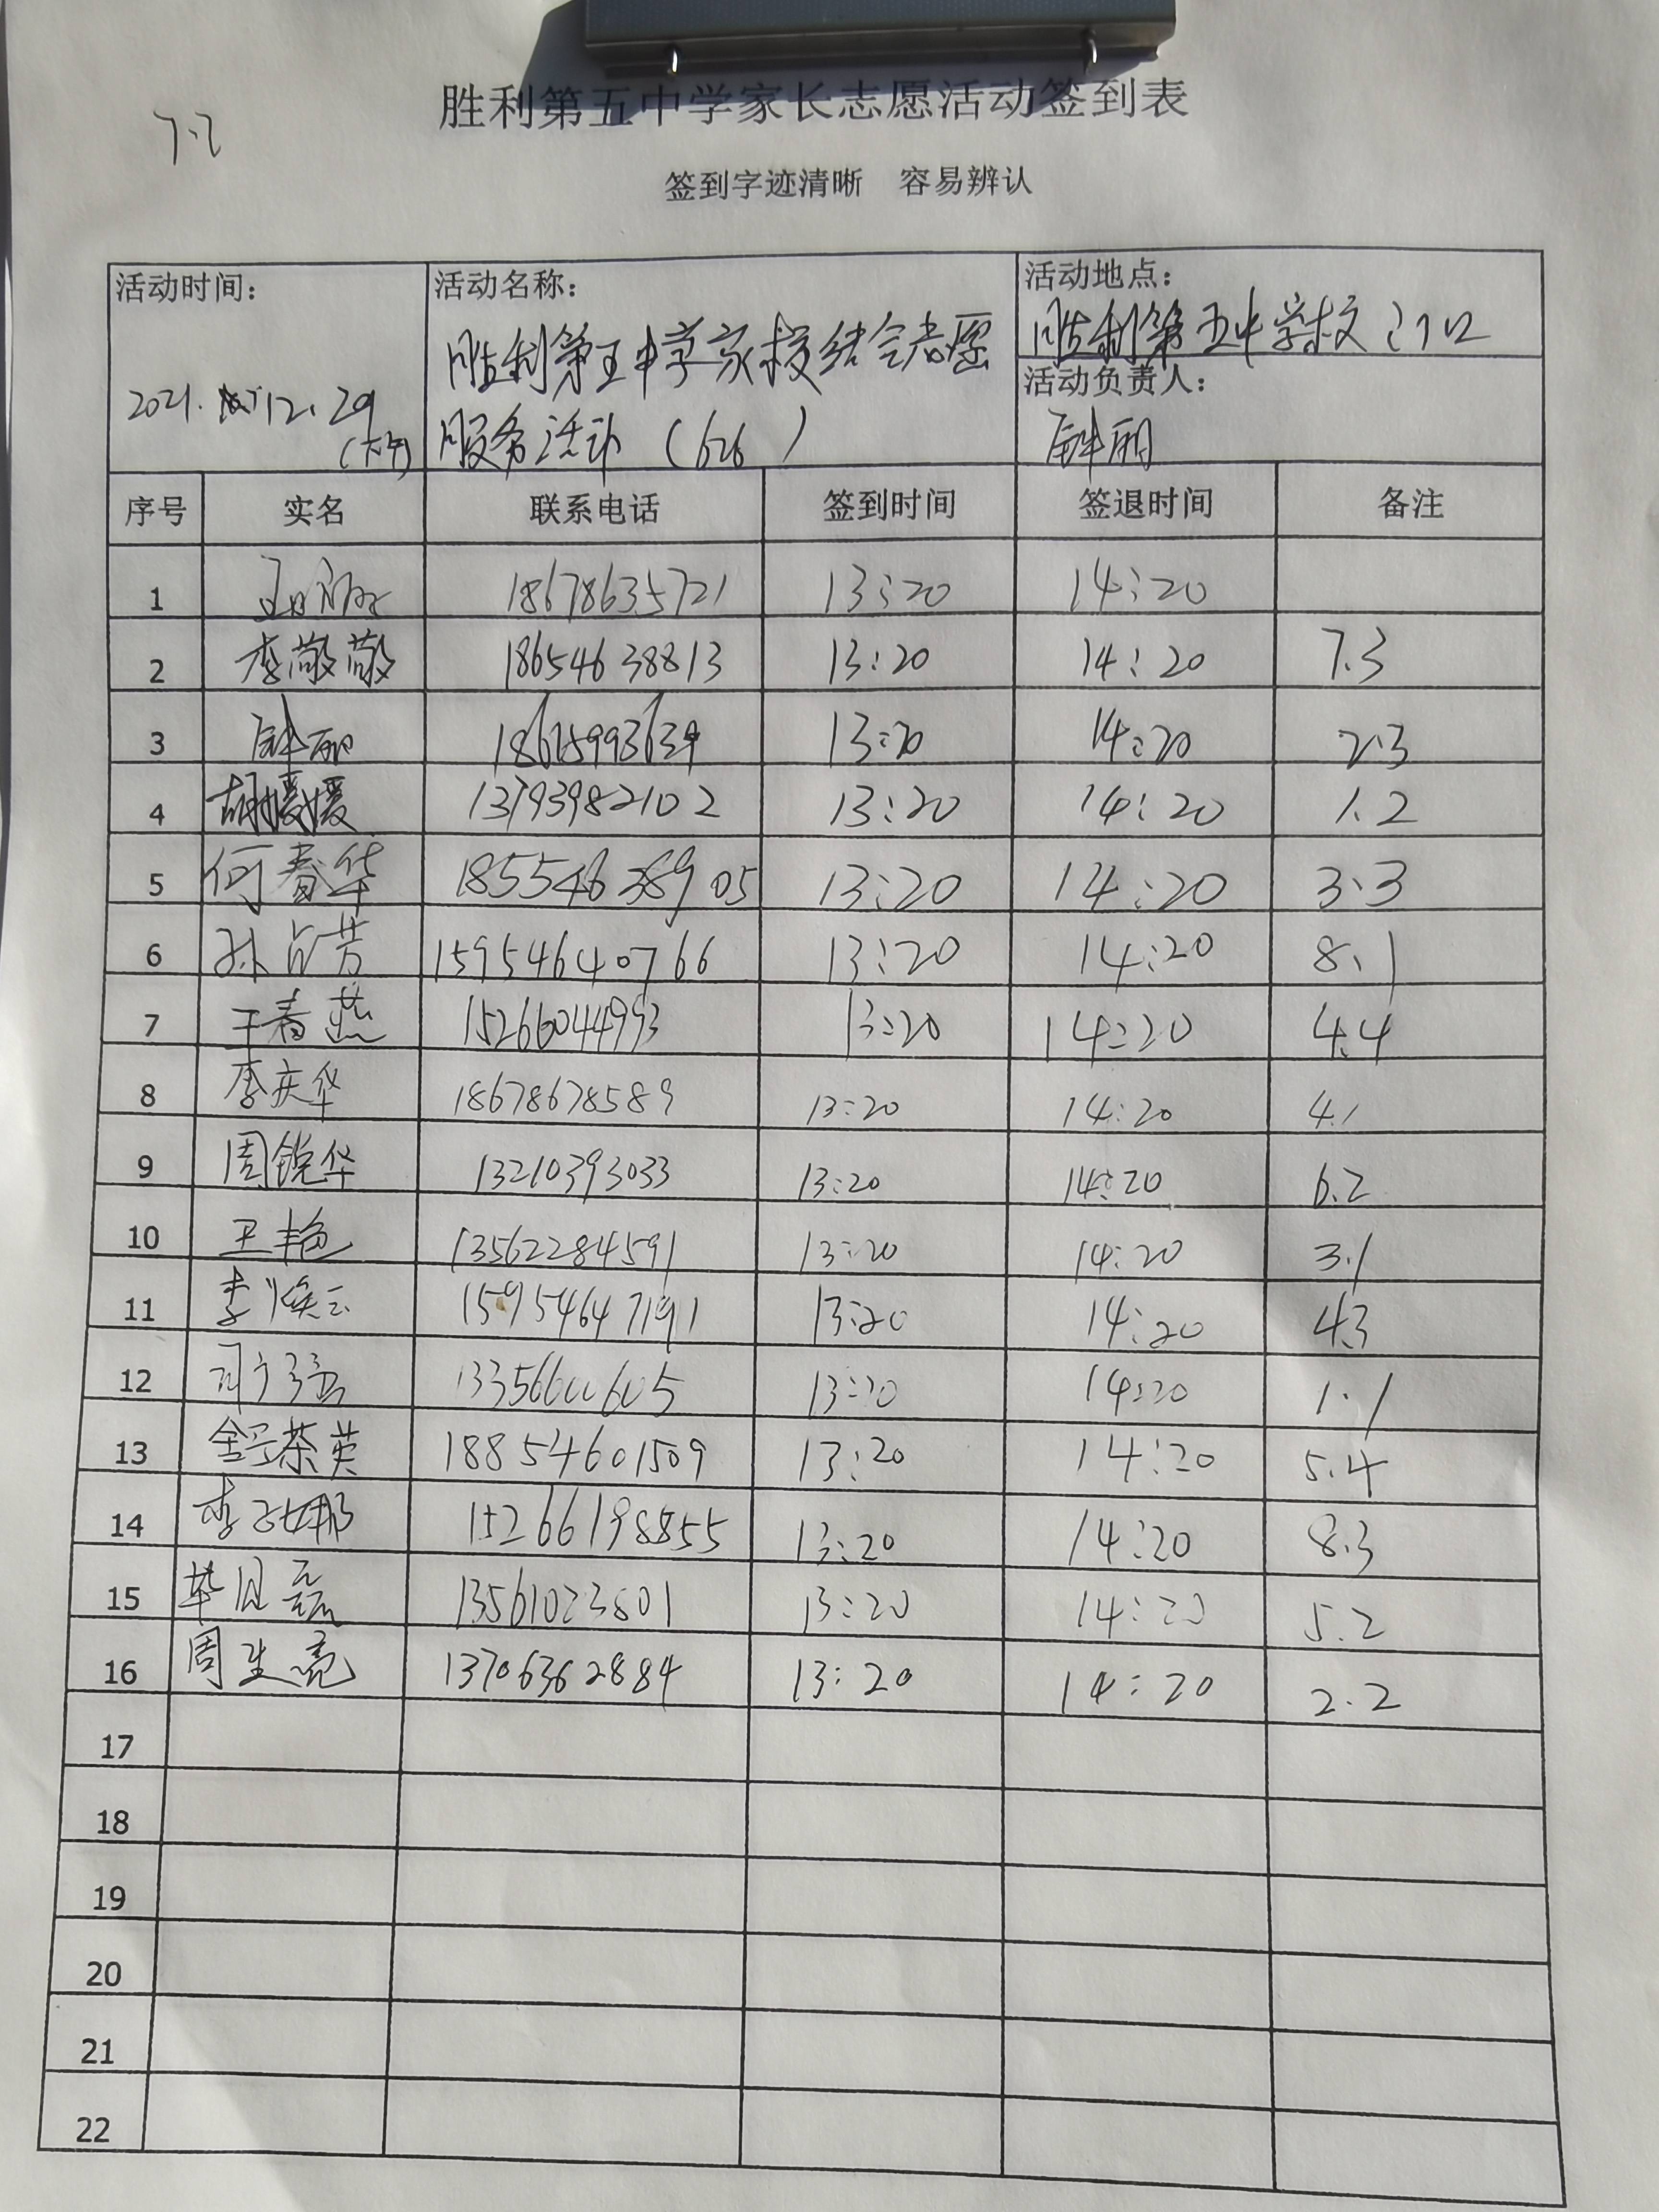 7.2
胜利第五中学家长志愿活动签到表
签到字迹清晰 容易辨认
活动时间:
2021. 12.29
活动名称:
胜利第五中学家校结合志愿
服务活动 (626 )
活动地点:
胜利第五中学校门口
活动负责人:
丽
序号 实名 联系电话 签到时间 签退时间 备注
1 18678635721 13:20 14:20
2 李敬敬 18654638813 13:20 14:20 7.3
3 丽 13:20 14:20 2.3
4 胡媛媛 13793982102 13:20 14:20 1.2
5 何春华 18554638905 13:20 14:20 3.3
6 孙占芳 15954640766 13:20 14:20 8.1
7 王春燕 15266044993 13:20 14:20 4.4
8 李庆华 18678678589 13:20 14:20 4.1
9 周锐华 13210393033 13:20 14:20 6.2
10 王艳 13562284591 13:20 14:20 3.1
11 李焕云 15954647191 13:20 14:20 4.3
12 13356600605 13:20 14:20 1.1
13 舒茶英 18854601509 13:20 14:20 5.4
14 李娜 15266198855 13:20 14:20 8.3
15 毕月磊 13561023801 13:20 14:20 5.2
16 周生亮 13706362884 13:20 14:20 2.2
17
18
19
20
21
22